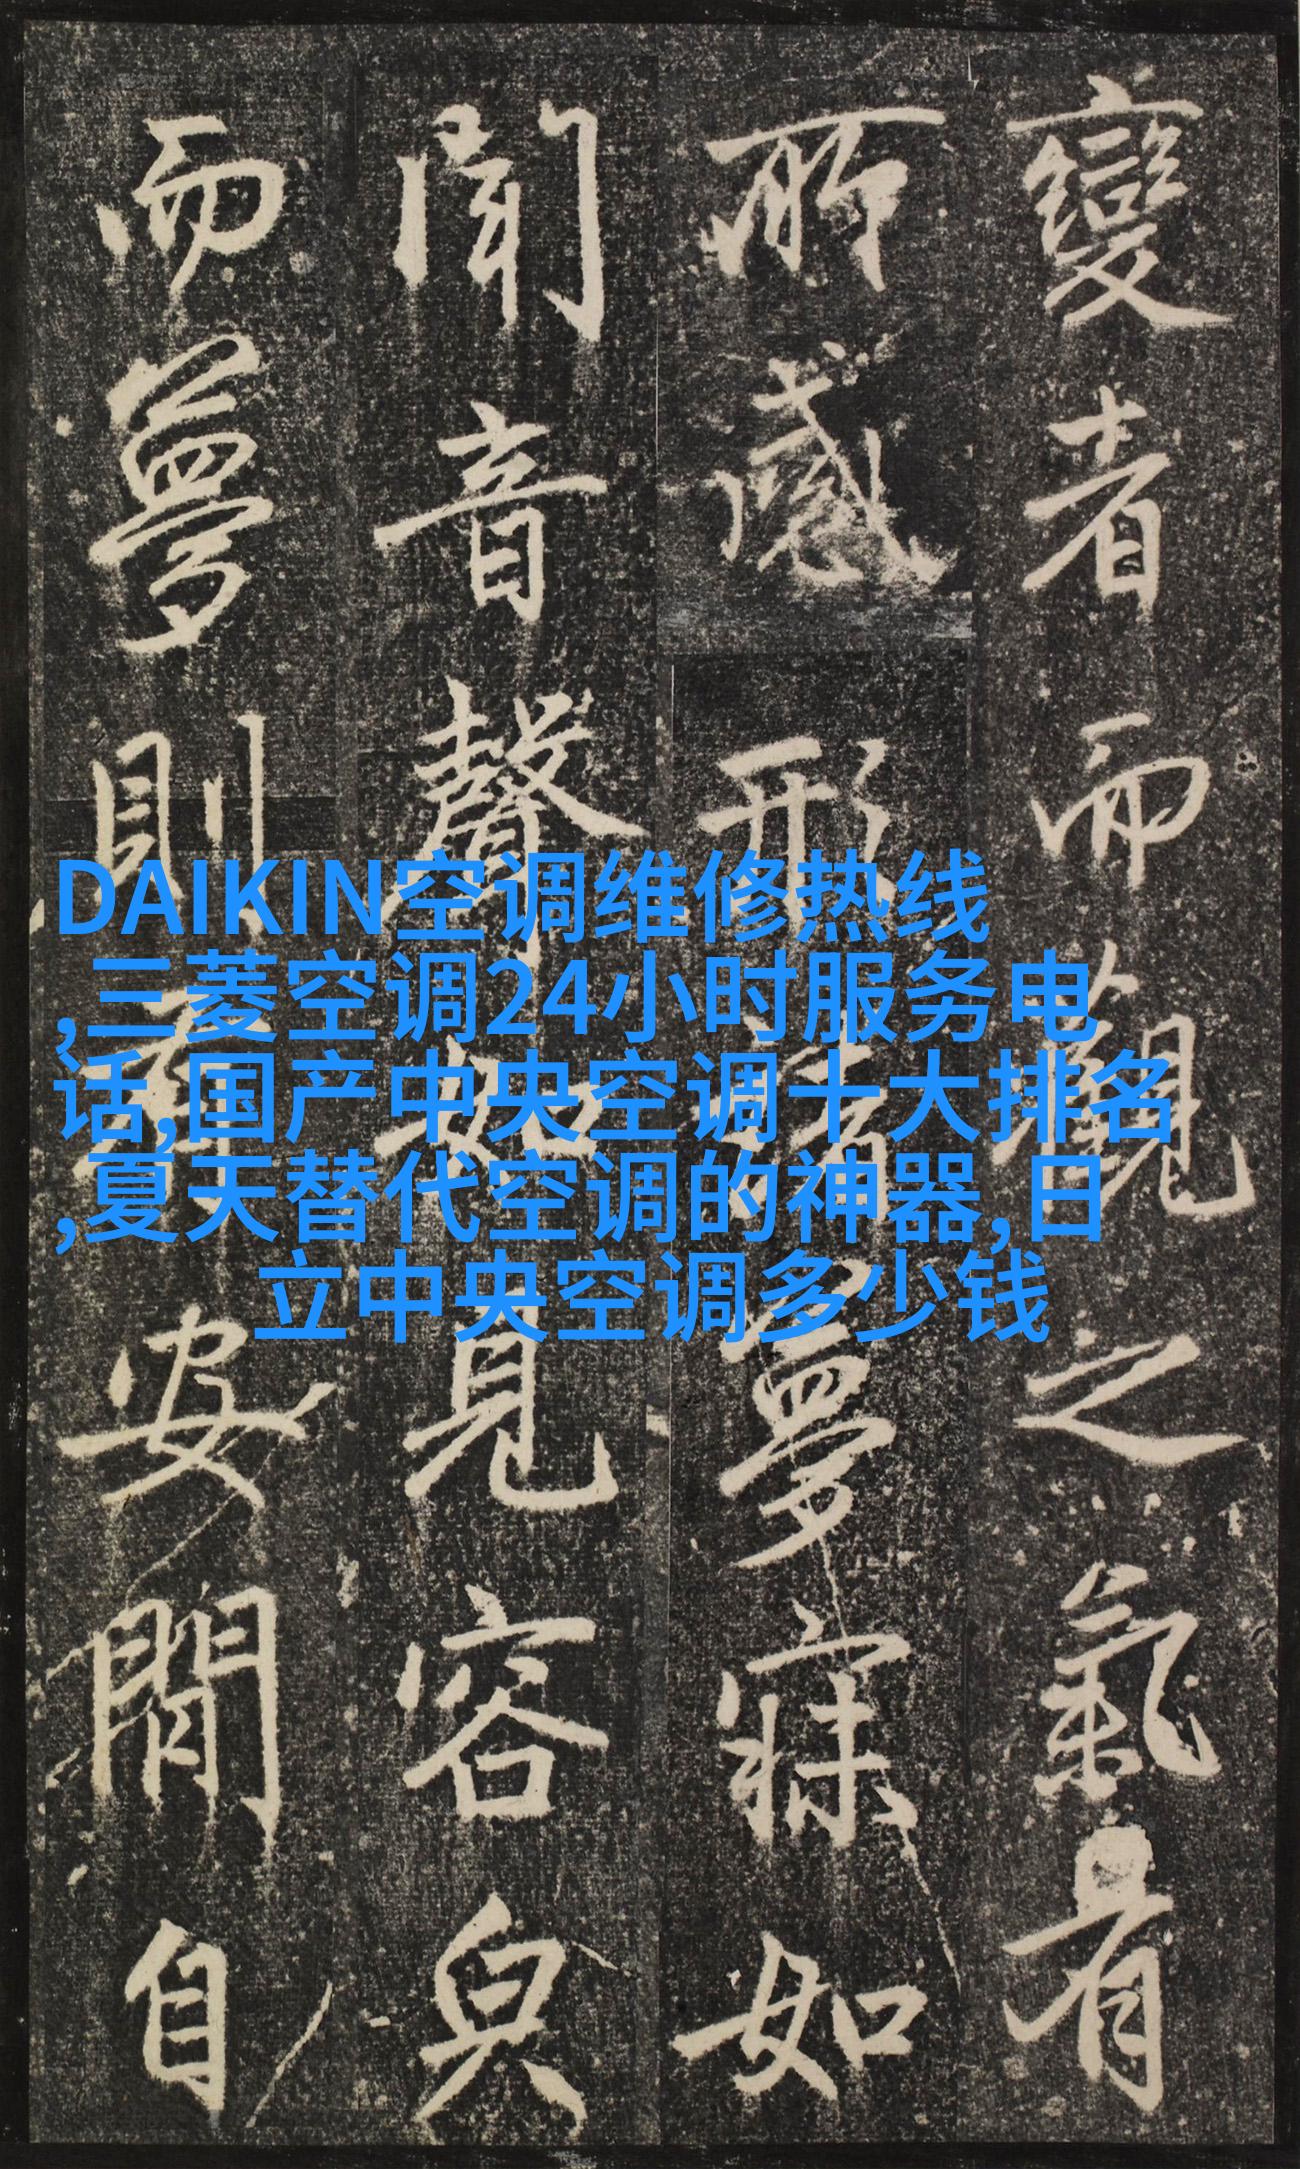 變者而觀之氣有
所感形諸夢寐如
聞音聲如見容皃
而夢則安閒自
DAIKIN空调维修热线
,三菱空调24小时服务电
话,国产中央空调十大排名
,夏天替代空调的神器,日
立中央空调多少钱